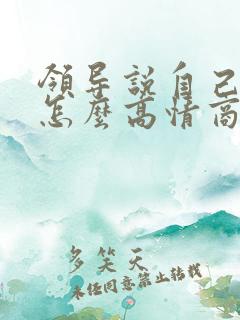 領导説自己
怎麽高情商
多笑天
未经同意禁止转载